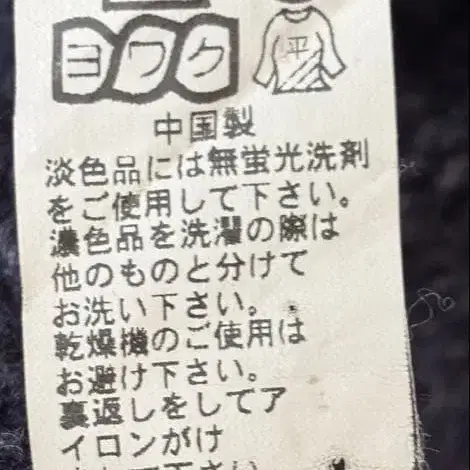 ヨワク
平
中国製
淡色品には無蛍光洗剤
をご使用して下さい。
濃色品を洗濯の際は
他のものと分けて
お洗い下さい。
乾燥機のご使用は
お避け下さい。
裏返しをしてア
イロンがけ
して下さい